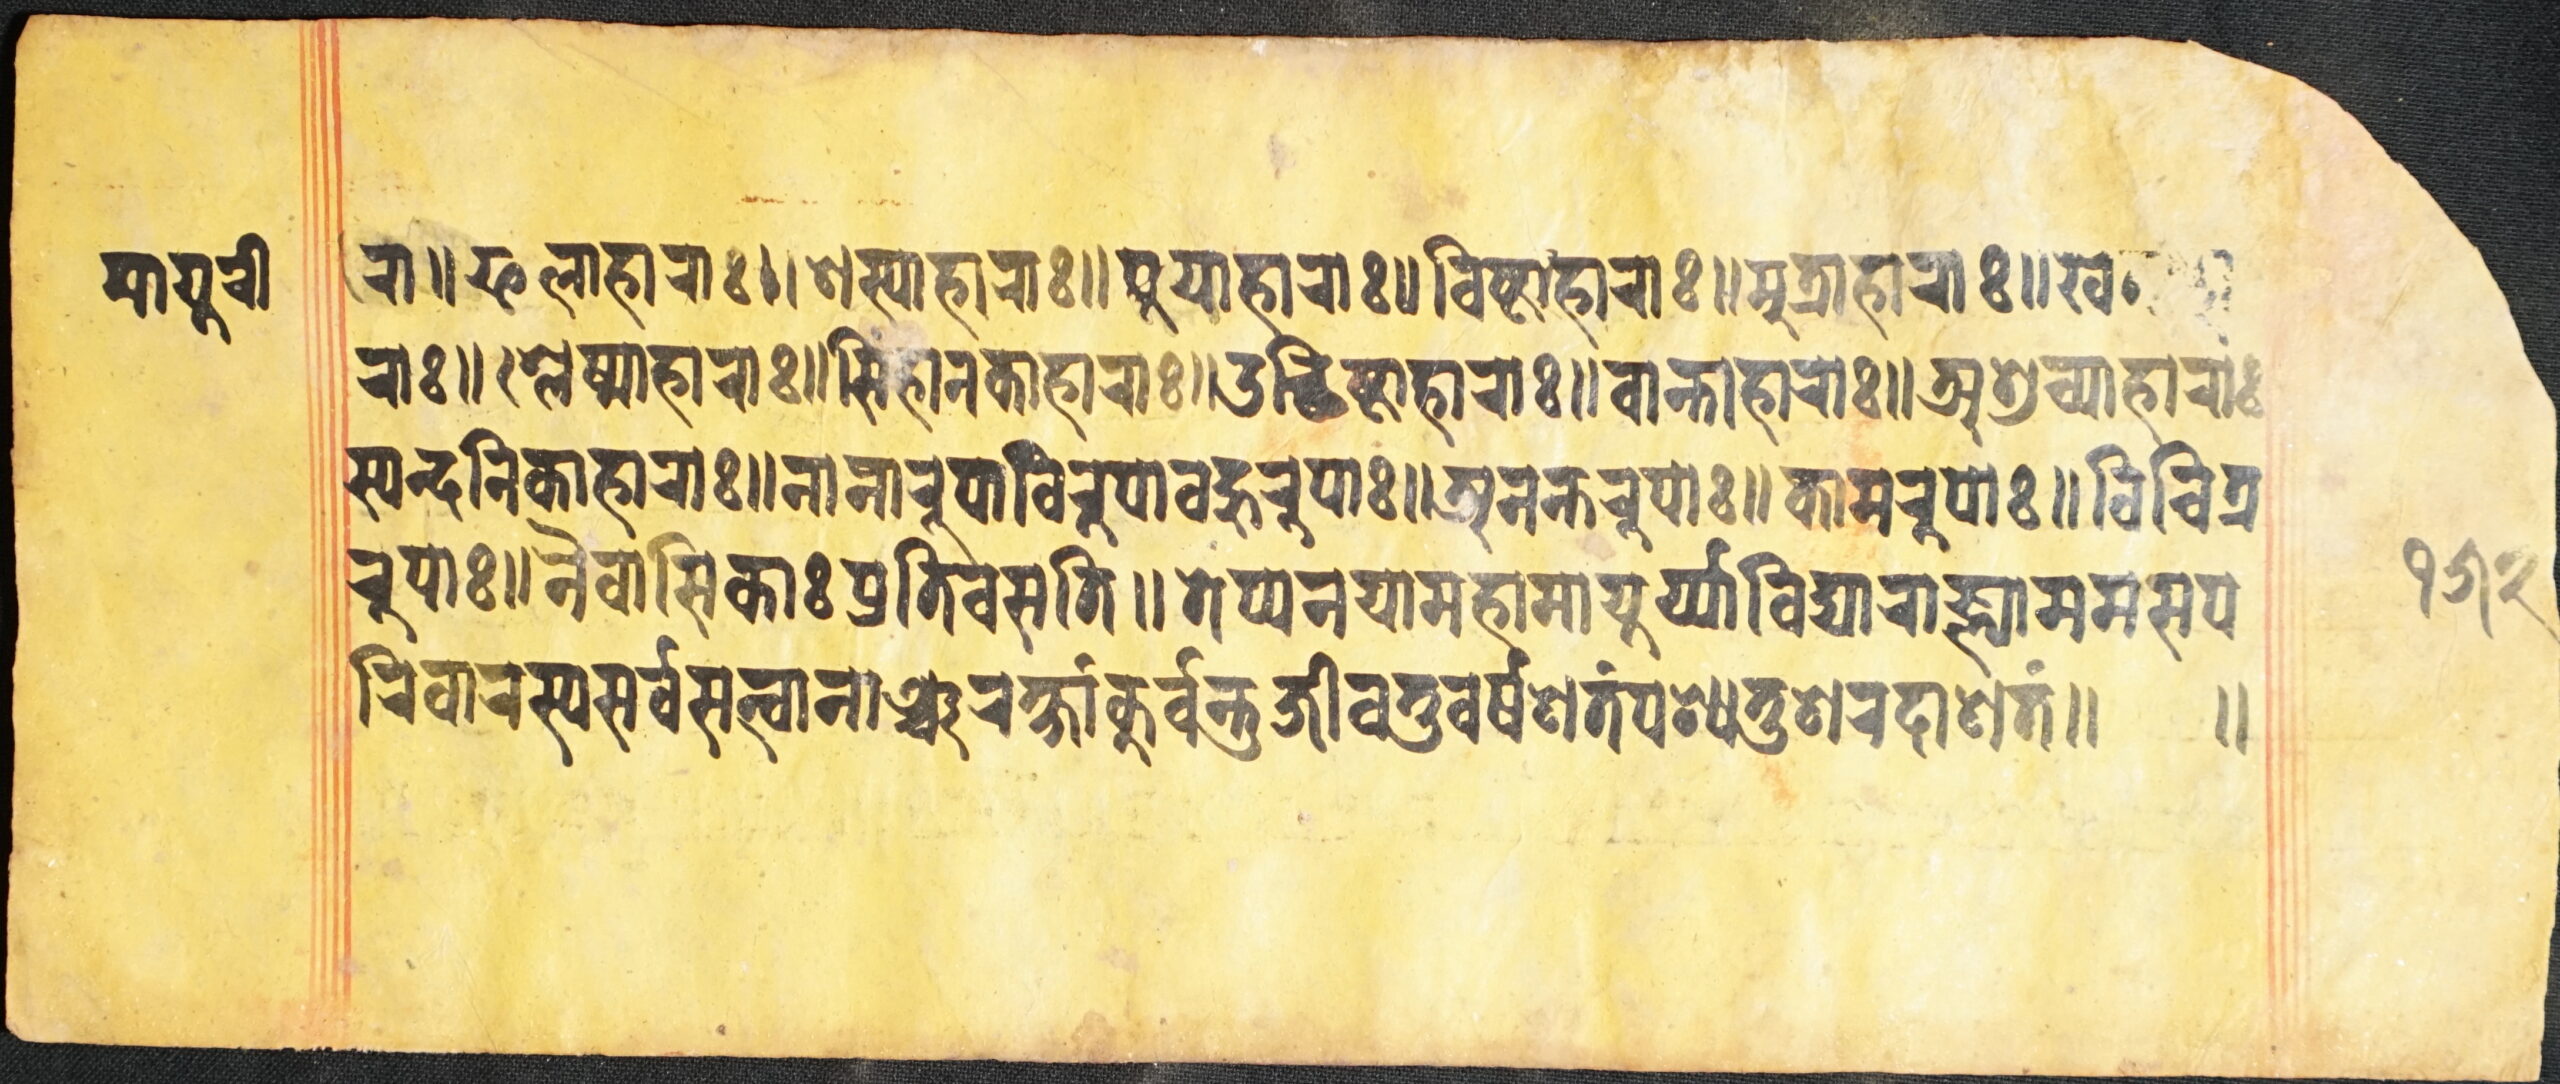 मायुरी
रा॥ फलाहाराः॥ शस्याहाराः॥ पुयाहाराः॥ विष्टाहाराः॥ मूत्राहाराः॥
राः॥ श्लेष्माहाराः॥ सिंहानकाहाराः॥ उच्छिष्टाहाराः॥ वान्ताहाराः॥ अशुच्याहाराः
स्पन्दनिकाहाराः॥ नानारुपाविरुपावहुरुपाः॥ अनन्तरुपाः॥ कामरुपाः॥ विचित्र
रुपाः॥ नैवासिकाः प्रतिवसति॥ तेप्यनयामहामायुर्य्याविद्याराज्ञ्याममसप
रिवारस्यसर्वसत्वानाञ्चरक्षांकुर्वन्तुजीवतुवर्षशतंपश्यतुशरदाशतं॥ ॥
१७२